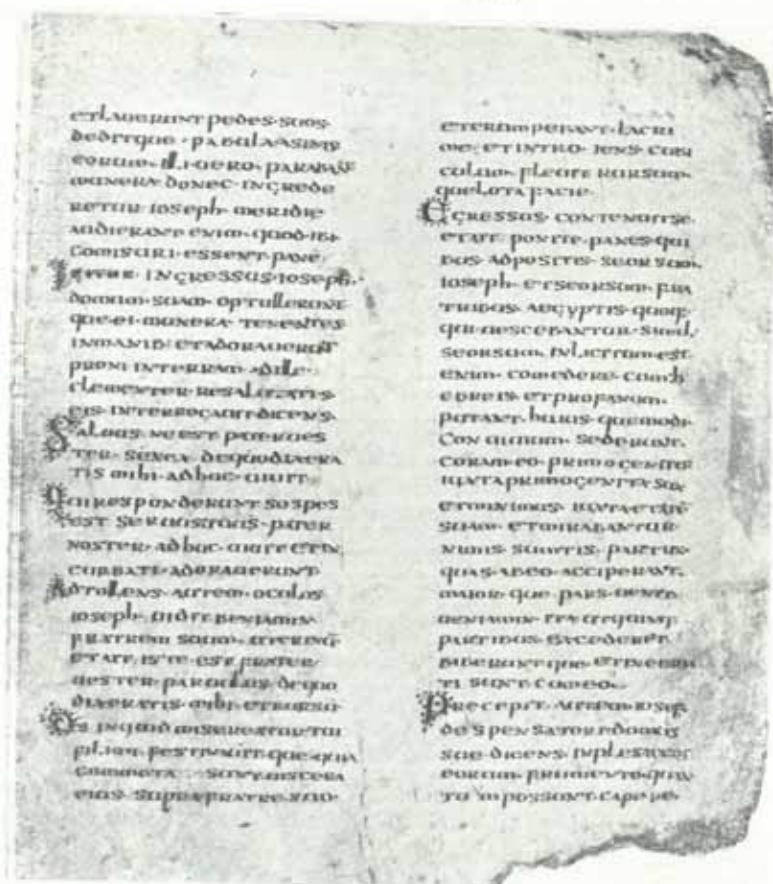 et laverunt pedes suos
deditque pabula asinis
eorum illi vero parabant
munera donec ingrede
retur ioseph meridie
audierant enim quod ibi
comisuri essent pane
igitur ingressus ioseph
domum suam optullerunt
que ei munera tenentes
in manib et adoraverunt
proni in terram ad ille
clementer resalutatis
eis interrogavit dicens
Salvus ne est pater ves
ter senex de quo dixera
tis mihi ad huc vivit
Qui responderunt sospes
est servus tuus pater
noster ad huc vivit et in
curbati adoraverunt
Adtollens autem oculos
ioseph vidit beniamin
fratrem suum uterinum
et ait iste est frater
vester parvulus de quo
dixeratis mihi et rursu
Ds inquid misereatur tui
fili mi festinavit que quia
commota sunt viscera
eius supra fratre suo
et erumpebant lacri
me et intro iens cubi
culum flevit rursum
que lota facie
Egressus contenuit se
et ait ponite panes qui
bus adpositis seorsum
ioseph et seorsum fra
tribus aegyptis quoq
qui vescebantur simul
seorsum inlicitum est
enim comedere cum h
ebreis et profanum
putant huius quemodi
convivium sederunt
coram eo primogenitus
iuxta primogenita sua
et minimus iuxta etate
suam et mirabantur
nimis sumtis partib
quas ab eo acciperant
maior que pars venit
beniamin ita ut quinq
partibus excederet
biberuntque et inebria
ti sunt cum eo
Precepit autem iosep
dispensatori domus
sue dicens inple saccos
eorum frumento quan
tum possunt capere